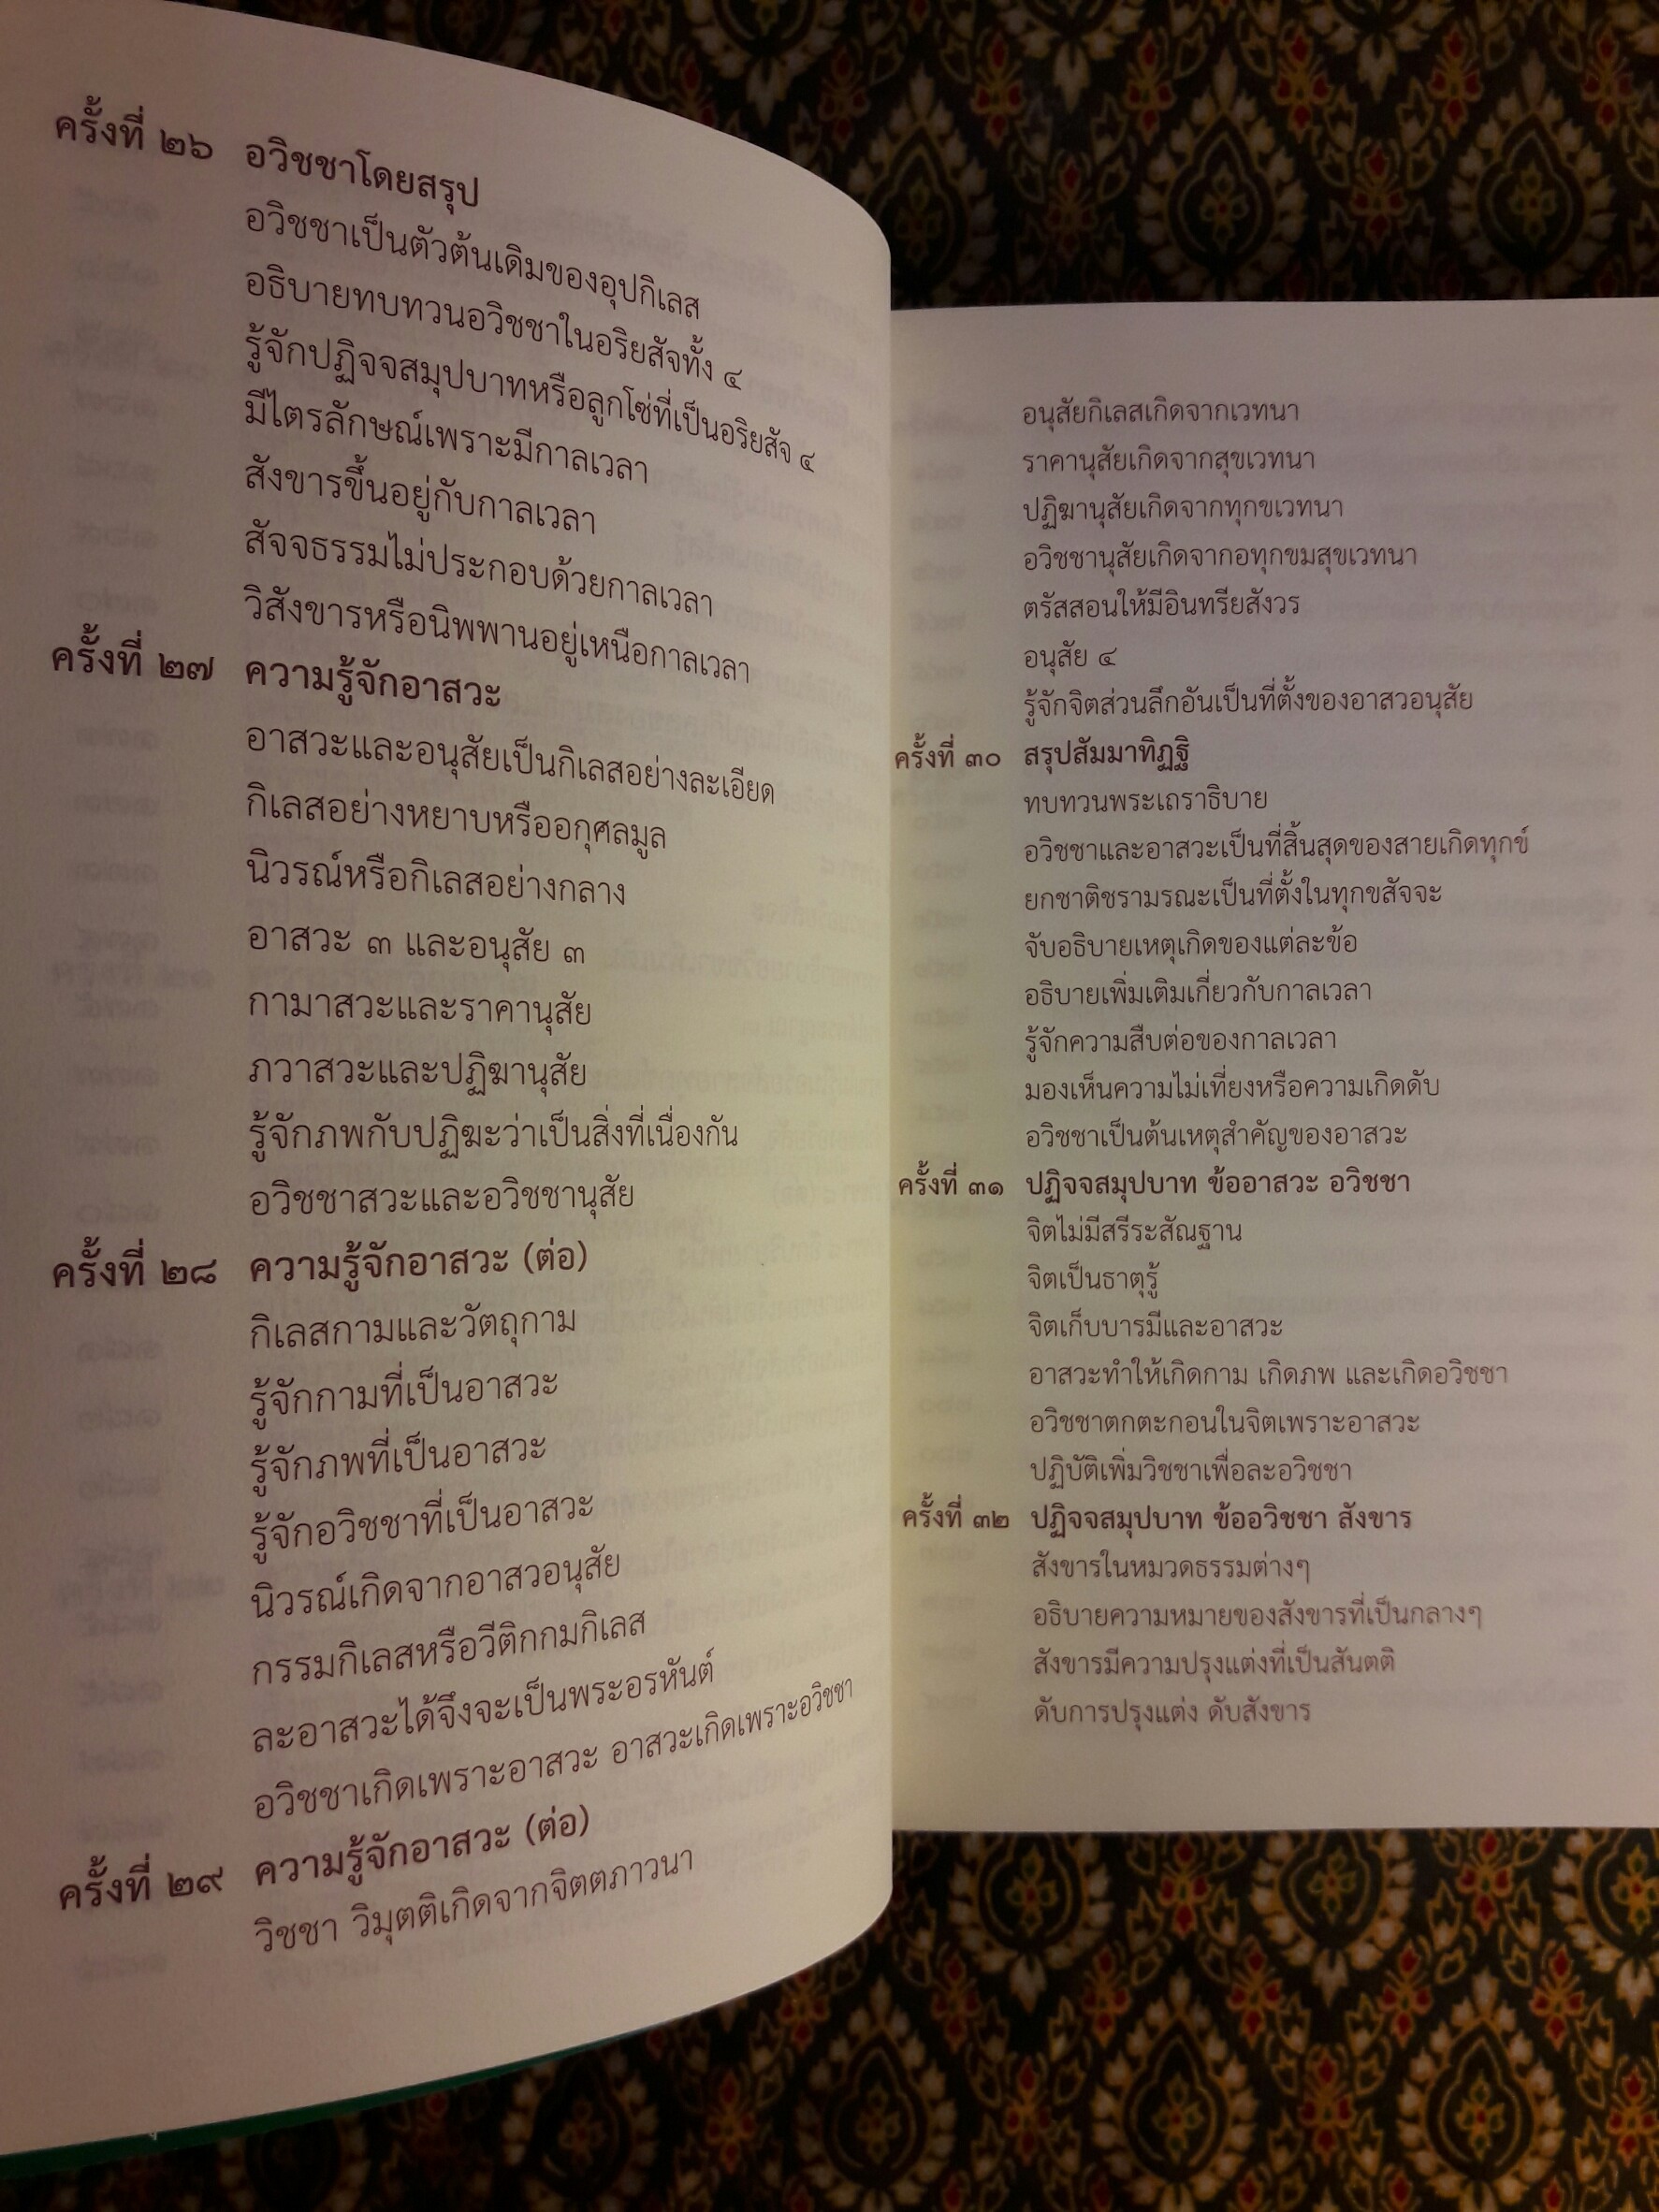 ครั้งที่ ๒๖ อวิชชาโดยสรุป
อวิชชาเป็นตัวต้นเดิมของอุปกิเลส
อธิบายทบทวนอวิชชาในอริยสัจทั้ง ๔
รู้จักปฏิจจสมุปบาทหรือลูกโซ่ที่เป็นอริยสัจ ๔
มีไตรลักษณ์เพราะมีกาลเวลา
สังขารขึ้นอยู่กับกาลเวลา
สัจจธรรมไม่ประกอบด้วยกาลเวลา
วิสังขารหรือนิพพานอยู่เหนือกาลเวลา
ครั้งที่ ๒๗ ความรู้จักอาสวะ
อาสวะและอนุสัยเป็นกิเลสอย่างละเอียด
กิเลสอย่างหยาบหรืออกุศลมูล
นิวรณ์หรือกิเลสอย่างกลาง
อาสวะ ๓ และอนุสัย ๓
กามาสวะและราคานุสัย
ภวาสวะและปฏิฆานุสัย
รู้จักภพกับปฏิฆะว่าเป็นสิ่งที่เนื่องกัน
อวิชชาสวะและอวิชชานุสัย
ครั้งที่ ๒๘ ความรู้จักอาสวะ (ต่อ)
กิเลสกามและวัตถุกาม
รู้จักกามที่เป็นอาสวะ
รู้จักภพที่เป็นอาสวะ
รู้จักอวิชชาที่เป็นอาสวะ
นิวรณ์เกิดจากอาสวอนุสัย
กรรมกิเลสหรือวีติกกมกิเลส
ละอาสวะได้จึงจะเป็นพระอรหันต์
อวิชชาเกิดเพราะอาสวะ อาสวะเกิดเพราะอวิชชา
ครั้งที่ ๒๙ ความรู้จักอาสวะ (ต่อ)
วิชชา วิมุตติเกิดจากจิตตภาวนา
อนุสัยกิเลสเกิดจากเวทนา
ราคานุสัยเกิดจากสุขเวทนา
ปฏิฆานุสัยเกิดจากทุกขเวทนา
อวิชชานุสัยเกิดจากอทุกขมสุขเวทนา
ตรัสสอนให้มีอินทรียสังวร
อนุสัย ๔
รู้จักจิตส่วนลึกอันเป็นที่ตั้งของอาสวอนุสัย
ครั้งที่ ๓๐ สรุปสัมมาทิฏฐิ
ทบทวนพระเถราธิบาย
อวิชชาและอาสวะเป็นที่สิ้นสุดของสายเกิดทุกข์
ยกชาติชรามรณะเป็นที่ตั้งในทุกขสัจจะ
จับอธิบายเหตุเกิดของแต่ละข้อ
อธิบายเพิ่มเติมเกี่ยวกับกาลเวลา
รู้จักความสืบต่อของกาลเวลา
มองเห็นความไม่เที่ยงหรือความเกิดดับ
อวิชชาเป็นต้นเหตุสำคัญของอาสวะ
ครั้งที่ ๓๑ ปฏิจจสมุปบาท ข้ออาสวะ อวิชชา
จิตไม่มีสรีระสัณฐาน
จิตเป็นธาตุรู้
จิตเก็บบารมีและอาสวะ
อาสวะทำให้เกิดกาม เกิดภพ และเกิดอวิชชา
อวิชชาตกตะกอนในจิตเพราะอาสวะ
ปฏิบัติเพิ่มวิชชาเพื่อละอวิชชา
ครั้งที่ ๓๒ ปฏิจจสมุปบาท ข้ออวิชชา สังขาร
สังขารในหมวดธรรมต่างๆ
อธิบายความหมายของสังขารที่เป็นกลางๆ
สังขารมีความปรุงแต่งที่เป็นสันตติ
ดับการปรุงแต่ง ดับสังขาร